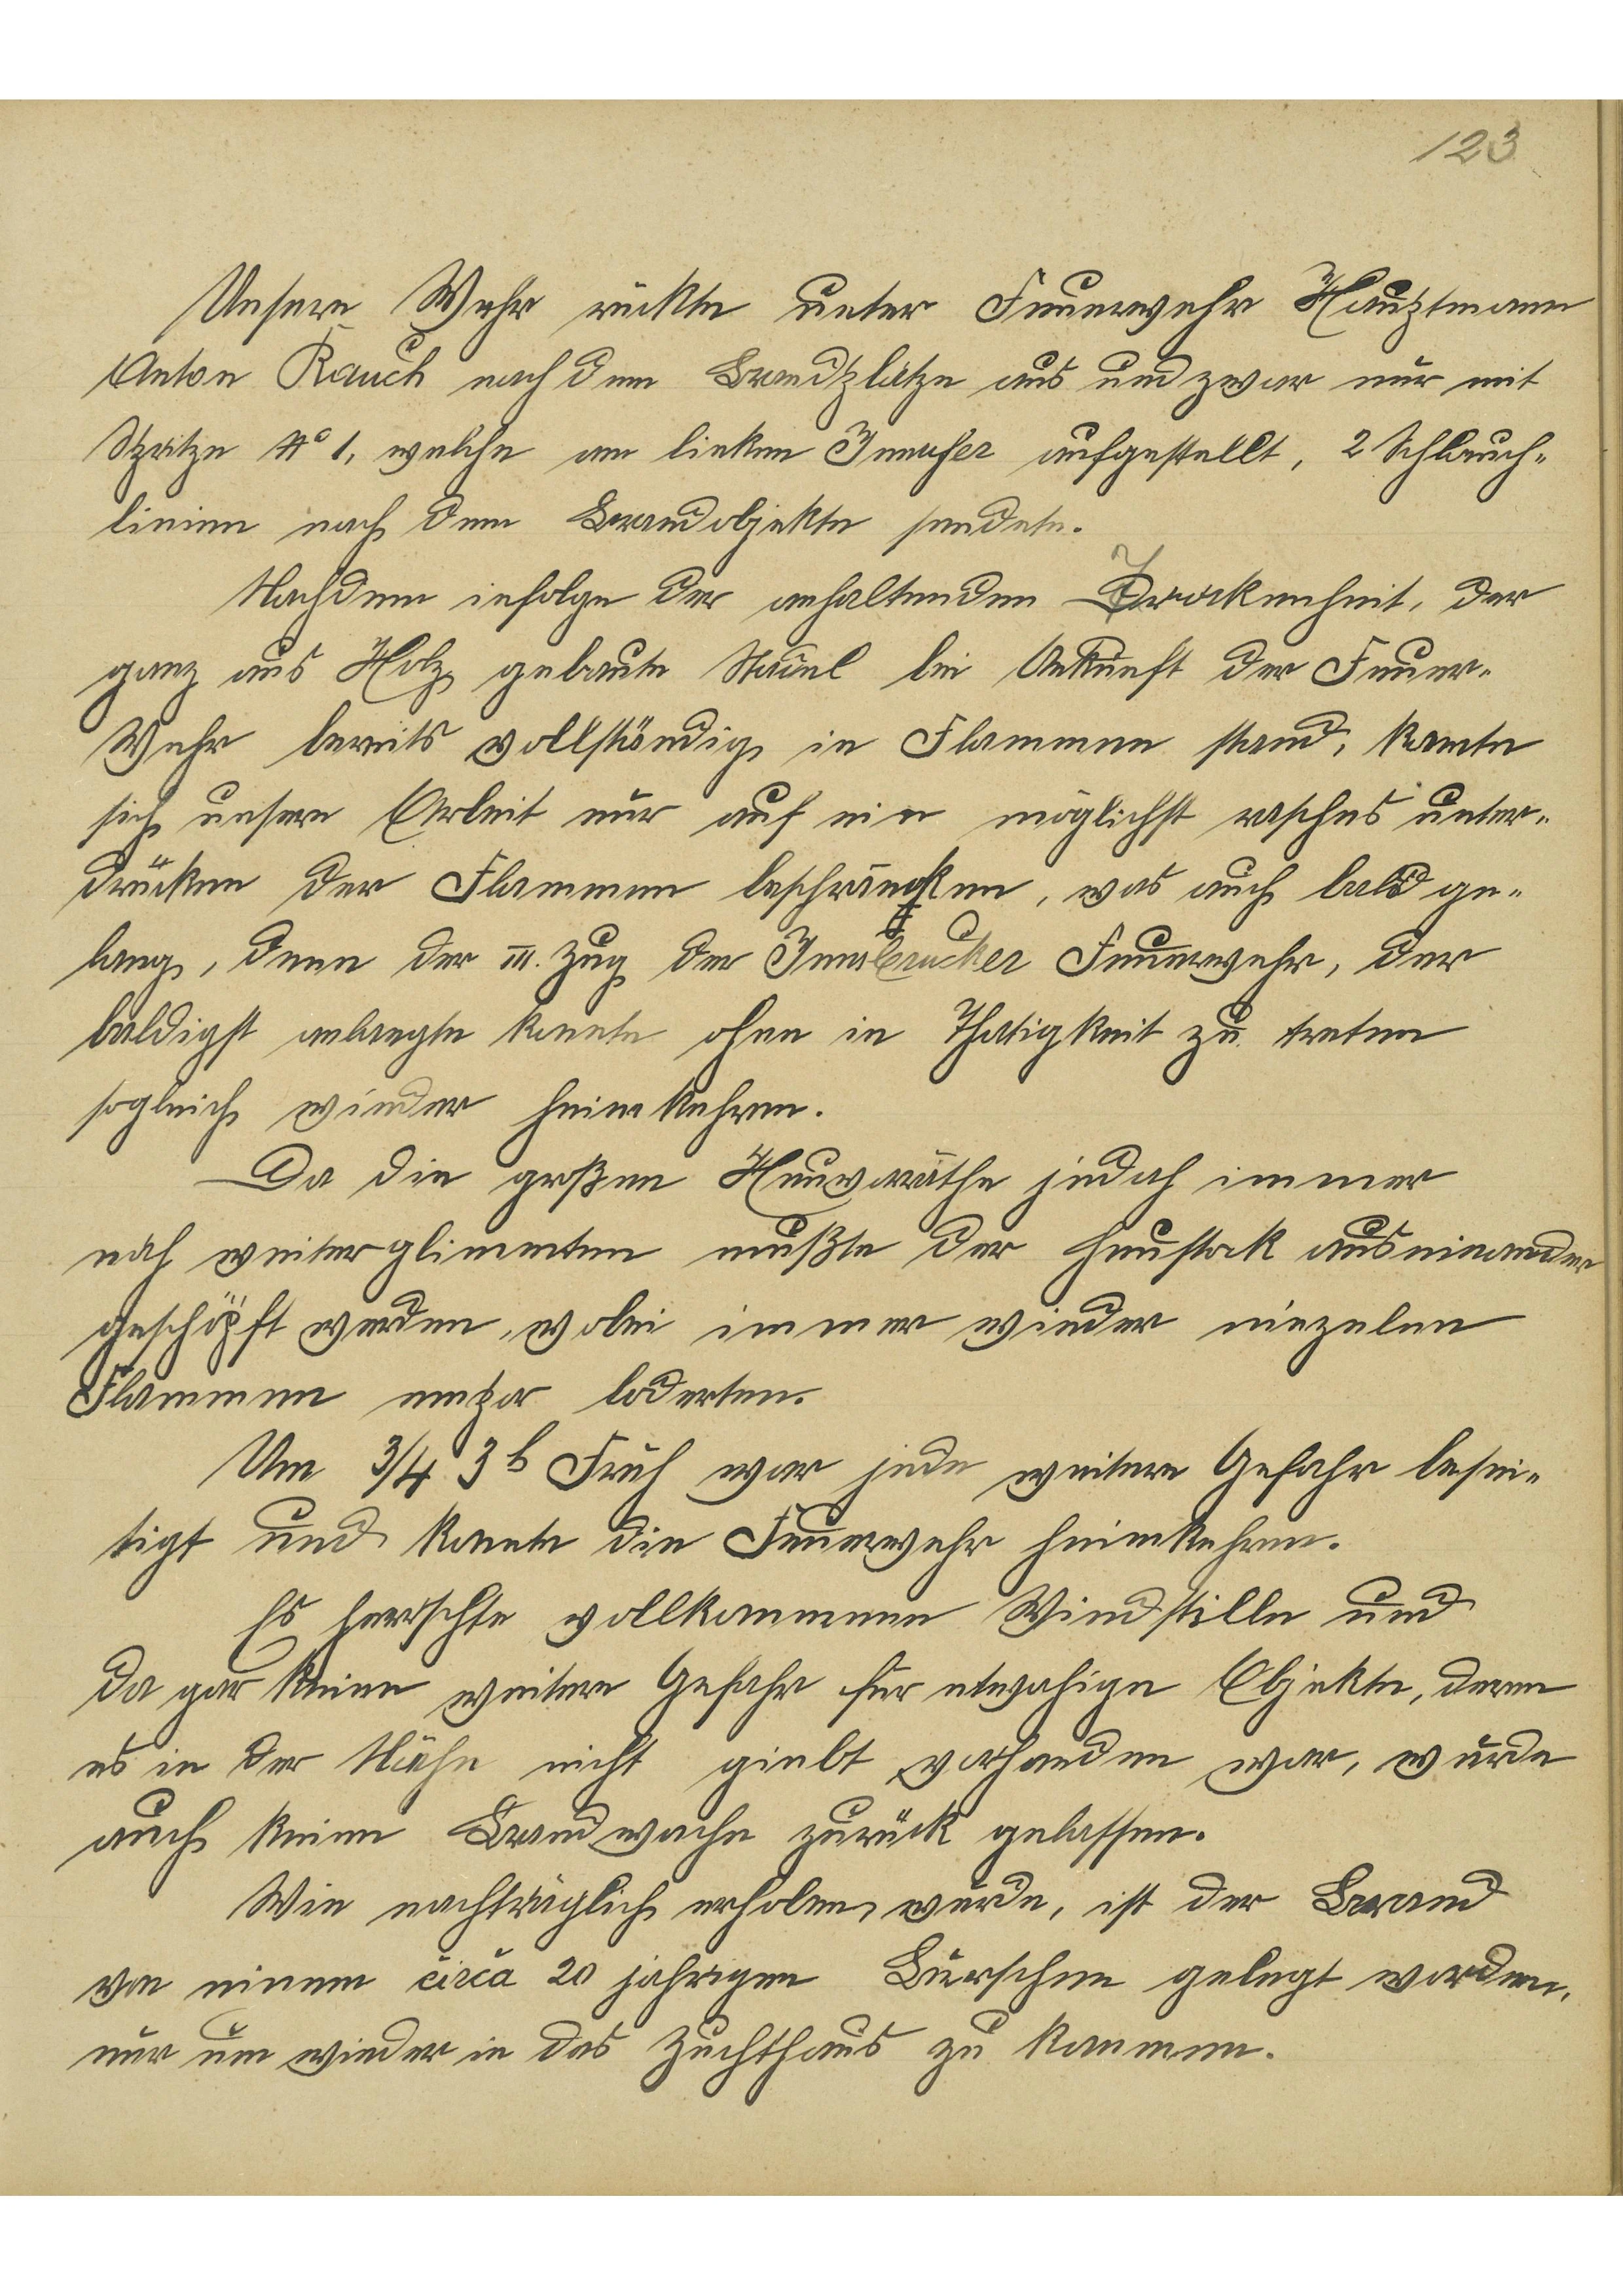 123
Unsere Wehr rückte unter Feuerwehr Hauptmann
Anton Rauch nach dem Brandplatze aus und zwar nur mit
Spritze No 1, welche am linken Innufer aufgestellt, 2 Schlauch-
linien nach dem Brandobjekte sendete.
Nachdem infolge der anhaltenden Trockenheit, der
ganz aus Holz gebaute Stadel bei Ankunft der Feuer-
Wehr bereits vollständig in Flammen stand, konnte
sich unsere Arbeit nur auf ein möglichst rasches unter-
drücken der Flammen beschränken, was auch bald ge-
lang, denn der III. Zug der Innsbrucker Feuerwehr, der
baldigst anlangte konnte ohne in Thätigkeit zu treten
sogleich wieder heimkehren.
Da die großen Heuvorräthe jedoch immer
noch weiterglimmten mußte der Heustock auseinander
geschöpft werden, wobei immer wieder einzelne
Flammen empor loderten.
Um 3/4 3h Früh war jede weitere Gefahr besei-
tigt und konnte die Feuerwehr heimkehren.
Es herrschte vollkommene Windstille und
da gar keine weitere Gefahr für etwahige Objekte, deren
es in der Nähe nicht giebt vorhanden war, wurde
auch keine Brandwache zurück gelassen.
Wie nachträglich erhoben wurde, ist der Brand
von einem circa 20 jährigen Burschen gelegt worden,
nur um wieder in das Zuchthaus zu kommen.